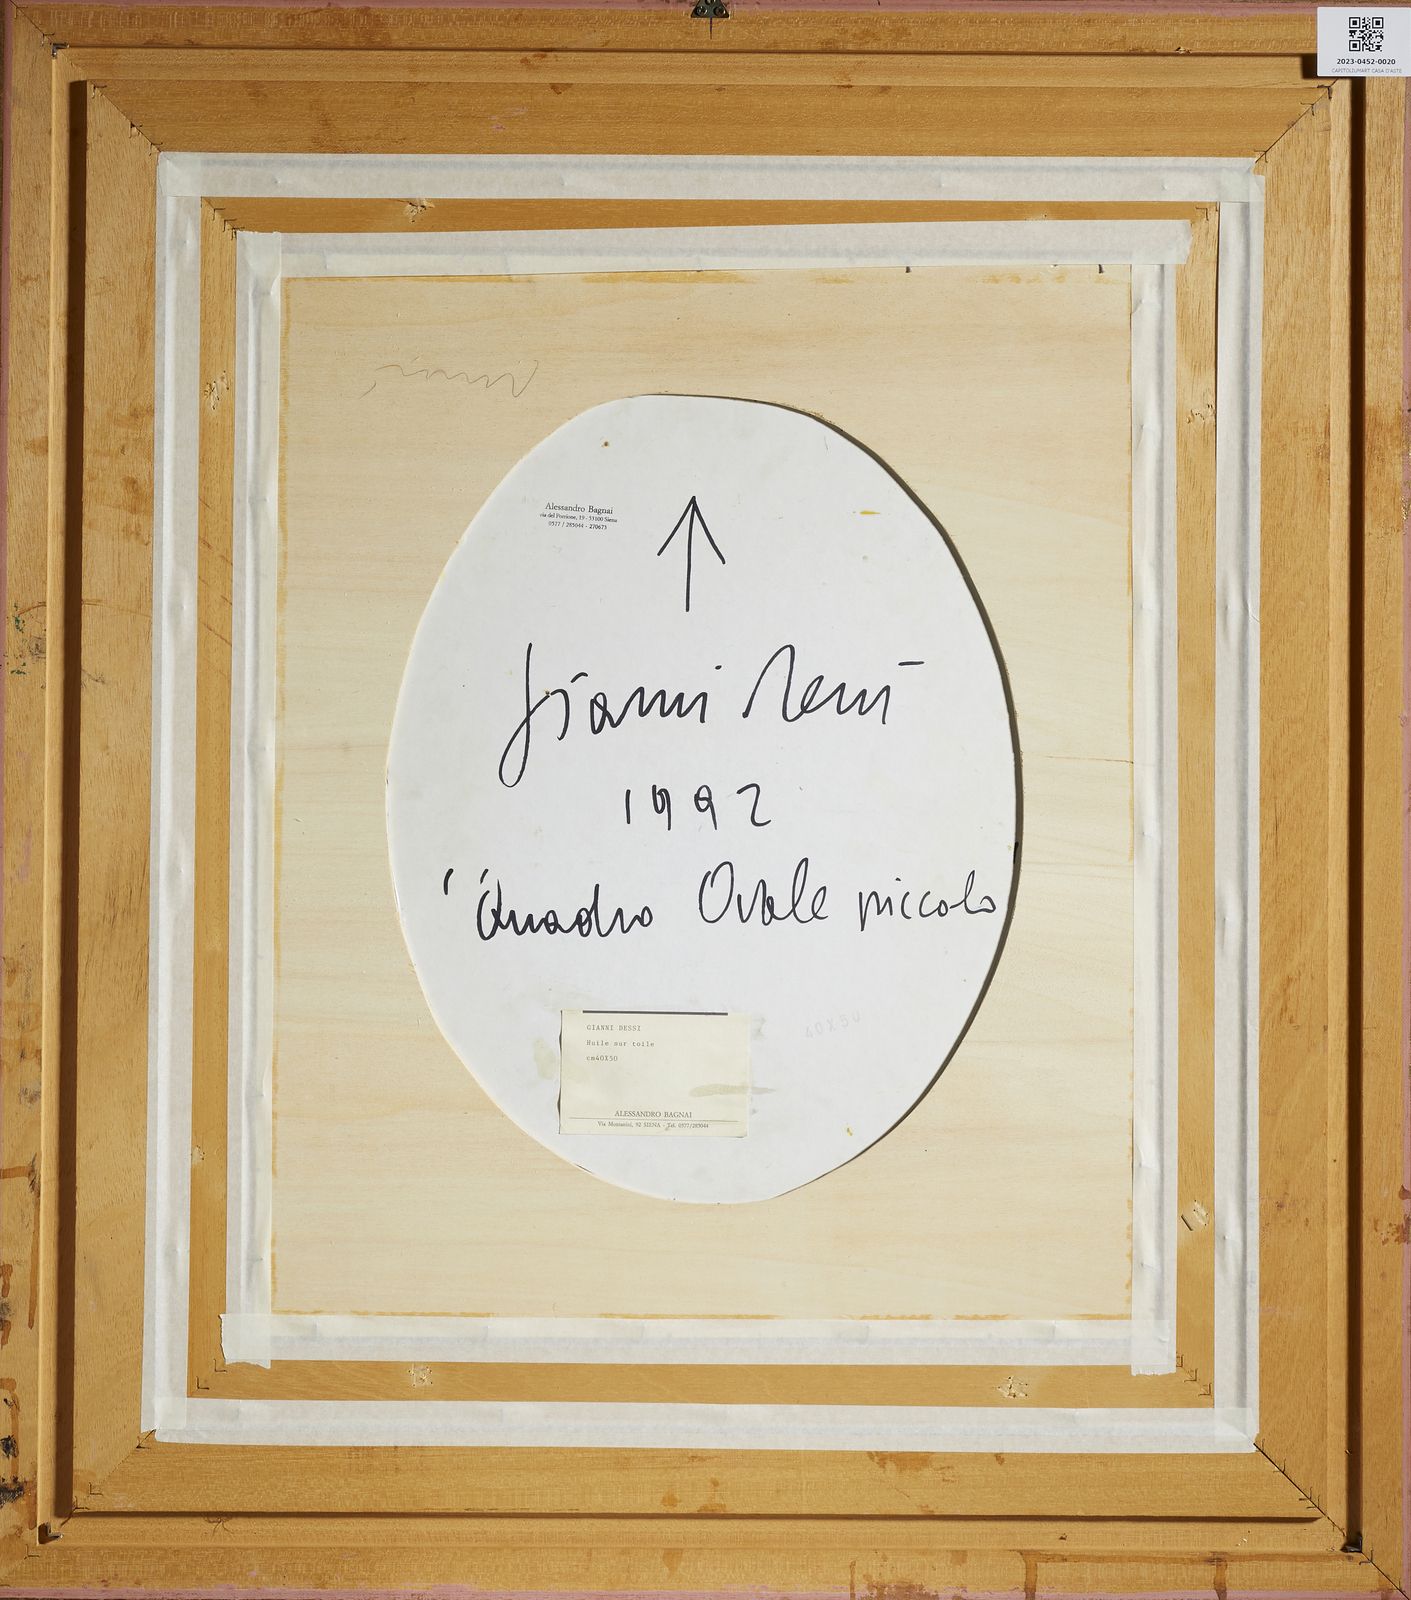 2023-0452-0020
CAPITOLIUMART CASA D'ASTE
Alessandro Bagnai
via del Porrione, 19 - 53100 Siena
0577 / 285044 - 270673
Gianni Dessì
1992
"Quadro Ovale piccolo
GIANNI DESSI
Huile sur toile
cm40X50
40X50
ALESSANDRO BAGNAI
Via Montanini, 92 SIENA - Tel. 0577/285044